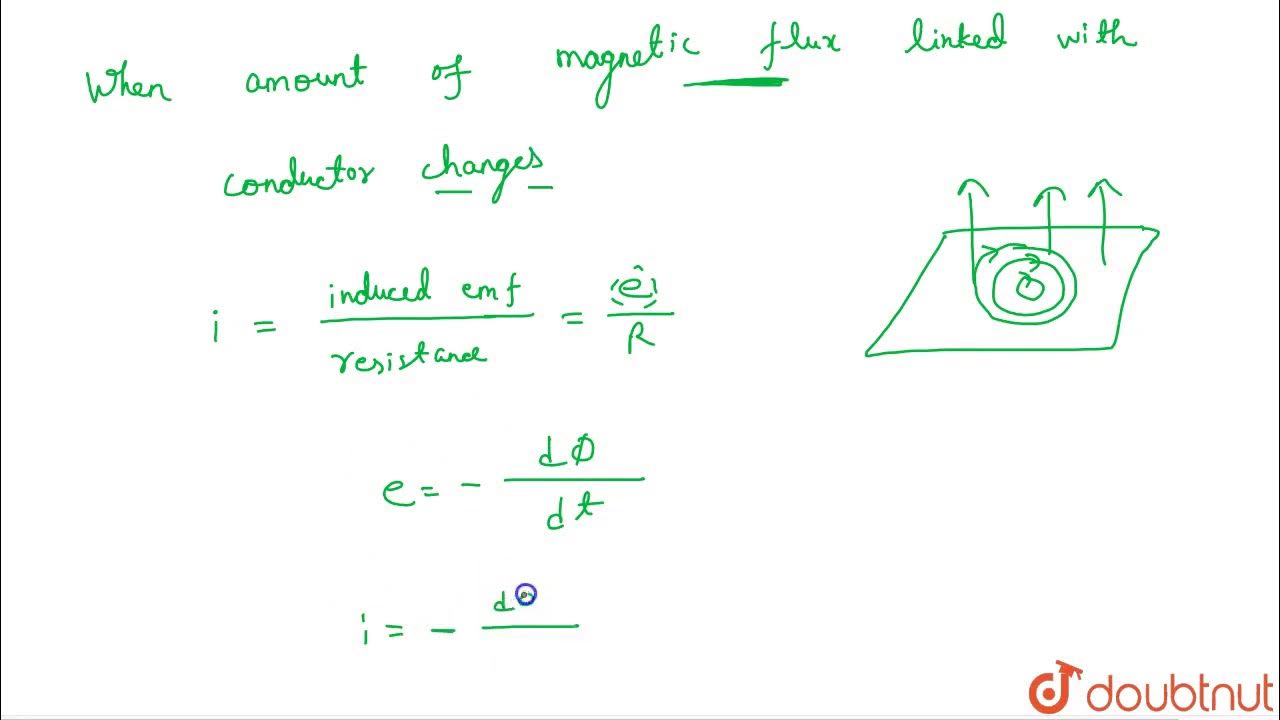 When amount of magnetic flux linked with
conductor changes
i = induced emf / resistance = (e) / R
e = - dΦ / dt
i = - d
doubtnut